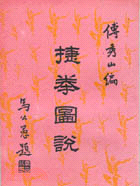 傅秀山編
捷拳圖說
馬公愚題